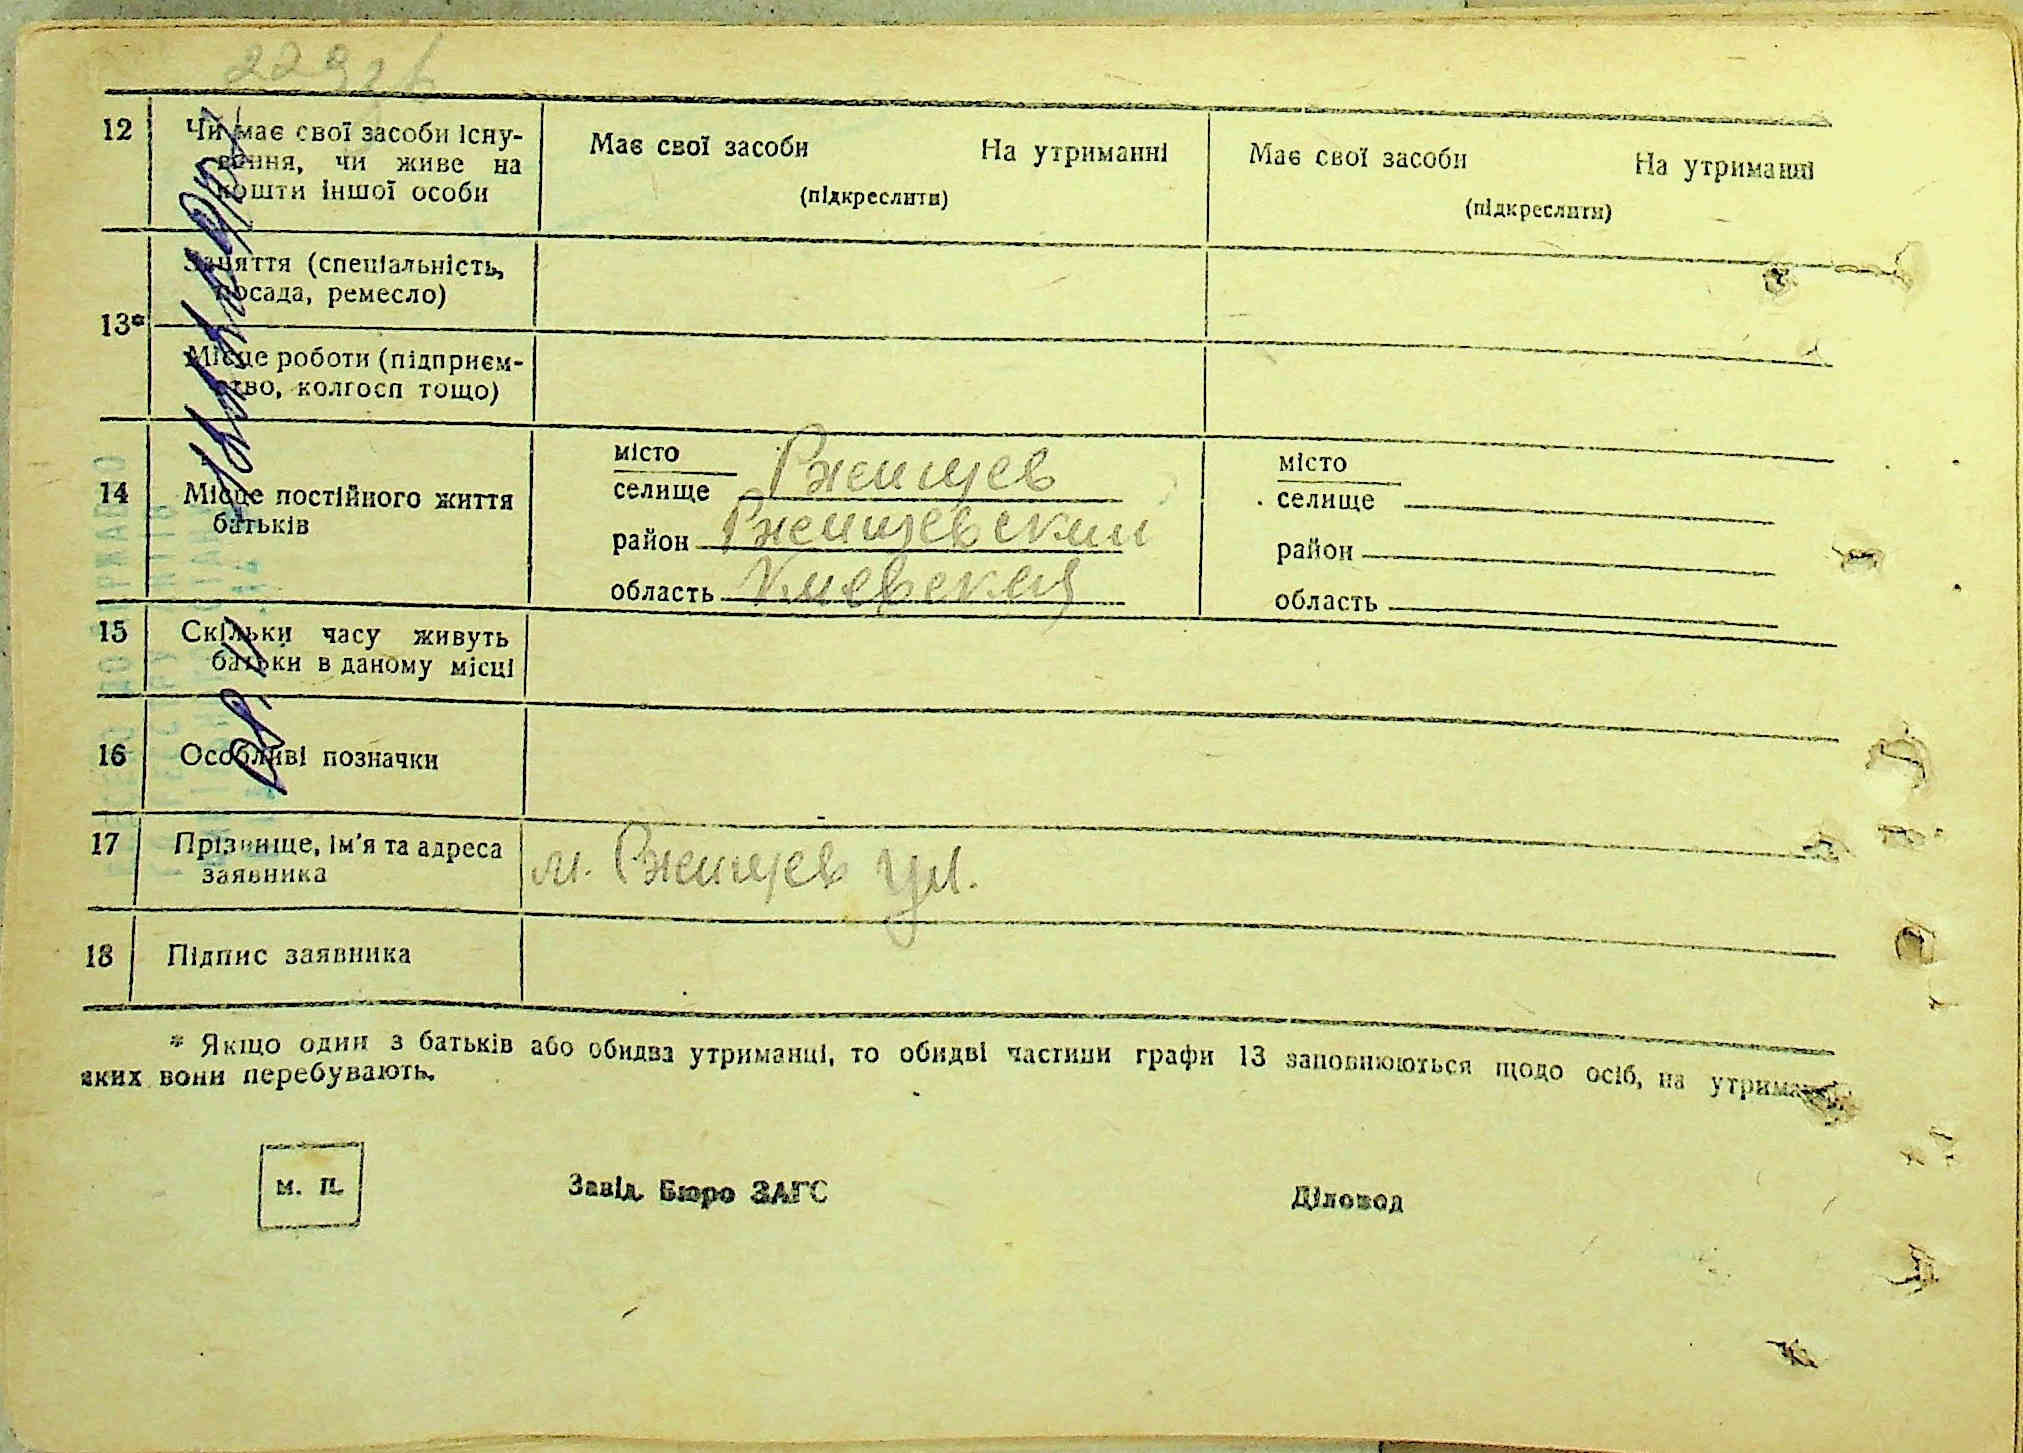 12
Чи має свої засоби існу-
вання, чи живе на
кошти іншої особи
Має свої засоби На утриманні
(підкреслити)
Має свої засоби На утриманні
(підкреслити)
13*
Заняття (спеціальність,
посада, ремесло)
Місце роботи (підприєм-
ство, колгосп тощо)
14
Місце постійного життя
батьків
місто
селище Ржищев
район Ржищевский
область Киевская
місто
селище
район
область
15
Скільки часу живуть
батьки в даному місці
16
Особливі позначки
17
Прізвище, ім'я та адреса
заявника
м. Ржищев ул.
18
Підпис заявника
* Якщо один з батьків або обидва утриманці, то обидві частини графи 13 заповнюються щодо осіб, на утриманні
яких вони перебувають.
М. П.
Завід. Бюро ЗАГС
Діловод